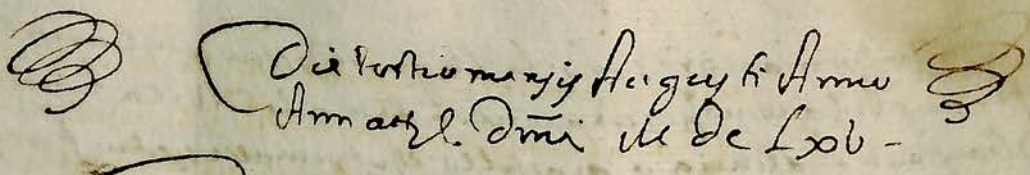 Die tertio mensis Augusti Anno
A nnatte. Dnī M Dc Lxv -